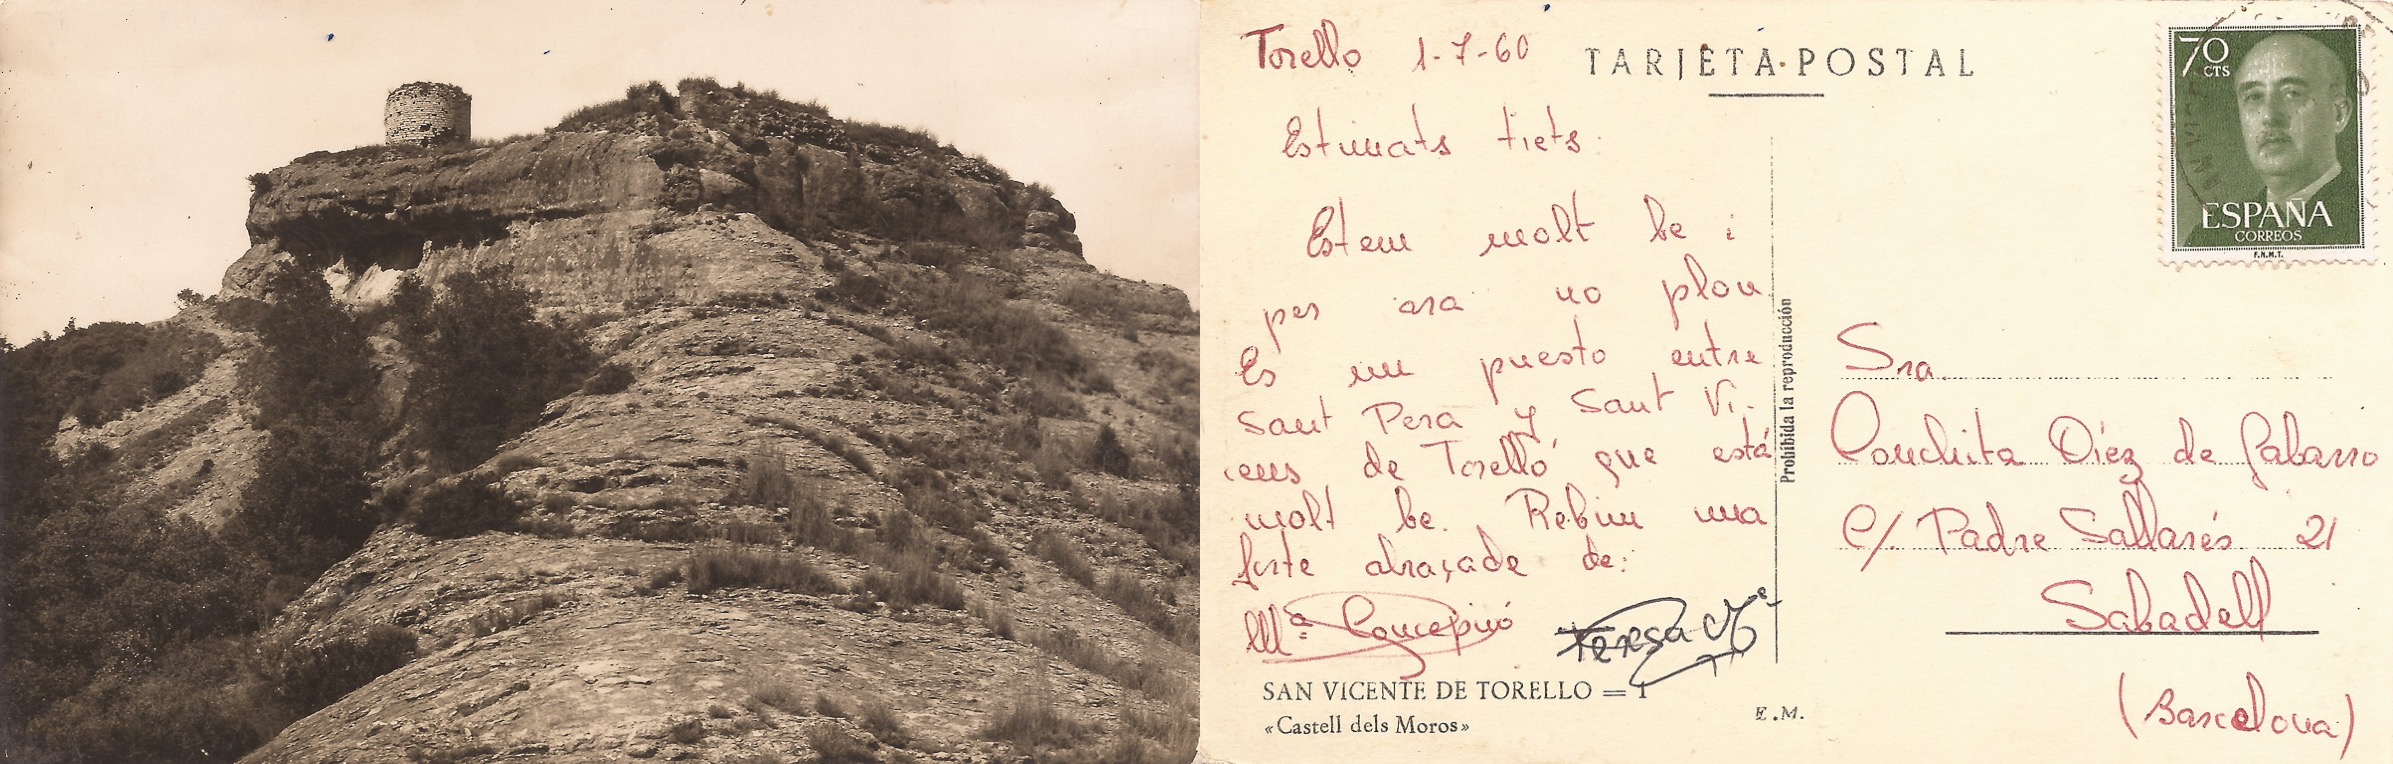 Torello 1-7-60
TARJETA POSTAL
Estimats tiets:
Estem molt be i
per ara no plou.
Es un puesto entre
Sant Pera y Sant Vi-
cens de Torelló que está
molt be. Rebin una
forte abraçade de:
Mª Concepció
Teresa Mª
SAN VICENTE DE TORELLO = 1
«Castell dels Moros»
E.M.
Prohibida la reproducción
70
CTS
ESPAÑA
CORREOS
F.N.M.T.
Sra.
Conchita Díez de Gabarro
C/. Padre Sallarés 21
Sabadell
(Barcelona)